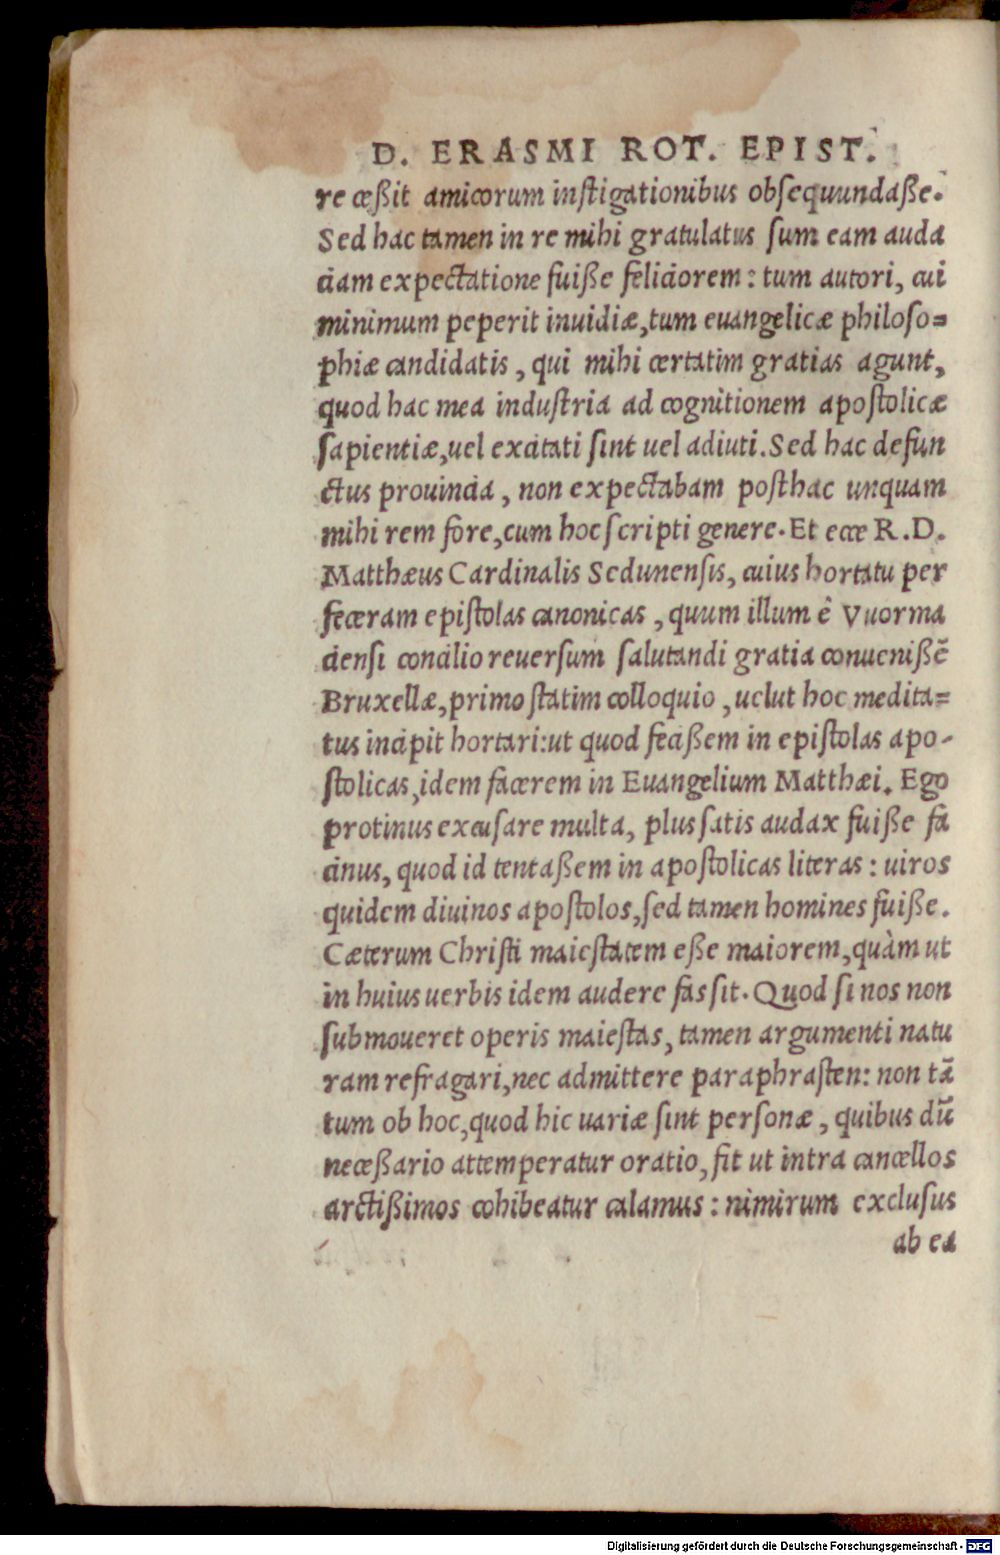 D. ERASMI ROT. EPIST.
re ceßit amicorum instigationibus obsequundaße.
Sed hac tamen in re mihi gratulatus sum eam auda
ciam expectatione fuiße feliciorem: tum autori, cui
minimum peperit inuidiæ, tum euangelicæ philoso=
phiæ candidatis, qui mihi certatim gratias agunt,
quod hac mea industria ad cognitionem apostolicæ
sapientiæ, uel excitati sint uel adiuti. Sed hac defun
ctus prouincia, non expectabam posthac unquam
mihi rem fore, cum hoc scripti genere. Et ecce R.D.
Matthæus Cardinalis Sedunensis, cuius hortatu per
feceram epistolas canonicas, quum illum è Vuorma
ciensi concilio reuersum salutandi gratia conueniẞē
Bruxellæ, primo statim colloquio, uelut hoc medita=
tus incipit hortari: ut quod fecißem in epistolas apo-
stolicas, idem facerem in Euangelium Matthæi. Ego
protinus excusare multa, plus satis audax fuiße fa
cinus, quod id tentaßem in apostolicas literas: uiros
quidem diuinos apostolos, sed tamen homines fuiße.
Cæterum Christi maiestatem eße maiorem, quàm ut
in huius uerbis idem audere fas sit. Quod si nos non
submoueret operis maiestas, tamen argumenti natu
ram refragari, nec admittere paraphrasten: non tā
tum ob hoc, quod hic uariæ sint personæ, quibus dū
neceßario attemperatur oratio, fit ut intra cancellos
arctißimos cohibeatur calamus: nimirum exclusus
ab ea
Digitalisierung gefördert durch die Deutsche Forschungsgemeinschaft - DFG